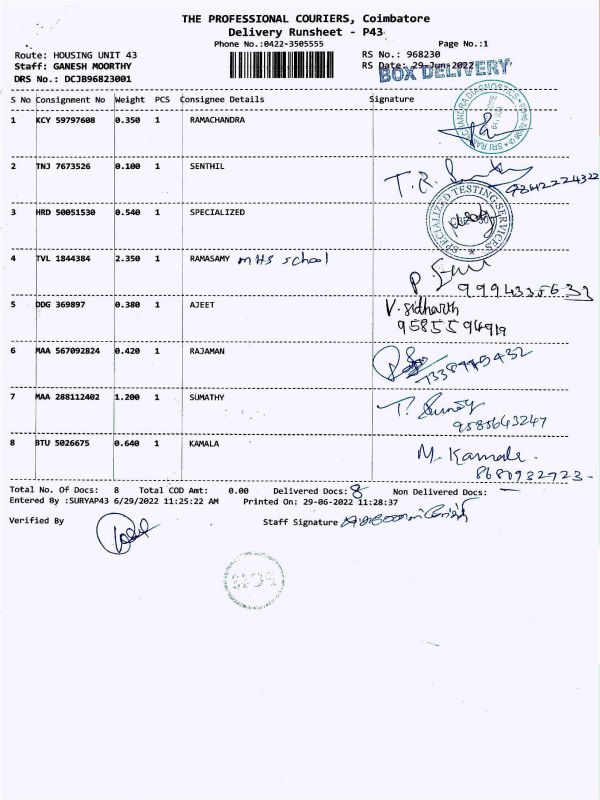 THE PROFESSIONAL COURIERS, Coimbatore
Delivery Runsheet - P43
Phone No.:0422-3505555 Page No.:1
Route: HOUSING UNIT 43 RS No.: 968230
Staff: GANESH MOORTHY RS Date: 29-Jun-2022
BOX DELIVERY
DRS No.: DCJB96823001
S No Consignment No Weight PCS Consignee Details Signature
1 KCY 59797608 0.350 1 RAMACHANDRA
2 TNJ 7673526 0.100 1 SENTHIL
9842224322
3 HRD 50051530 0.540 1 SPECIALIZED
SPECIALIZED TESTING SERVICES
4 TVL 1844384 2.350 1 RAMASAMY MHS school
5 DDG 369897 0.380 1 AJEET V. Sidharth
9585594919
6 MAA 567092824 0.420 1 RAJAMAN
7 MAA 288112402 1.200 1 SUMATHY
9585643247
8 BTU 5026675 0.640 1 KAMALA M. Kamala.
8680932723-
Total No. Of Docs: 8 Total COD Amt: 0.00 Delivered Docs: 8 Non Delivered Docs: —
Entered By :SURYAP43 6/29/2022 11:25:22 AM Printed On: 29-06-2022 11:28:37
Verified By Staff Signature